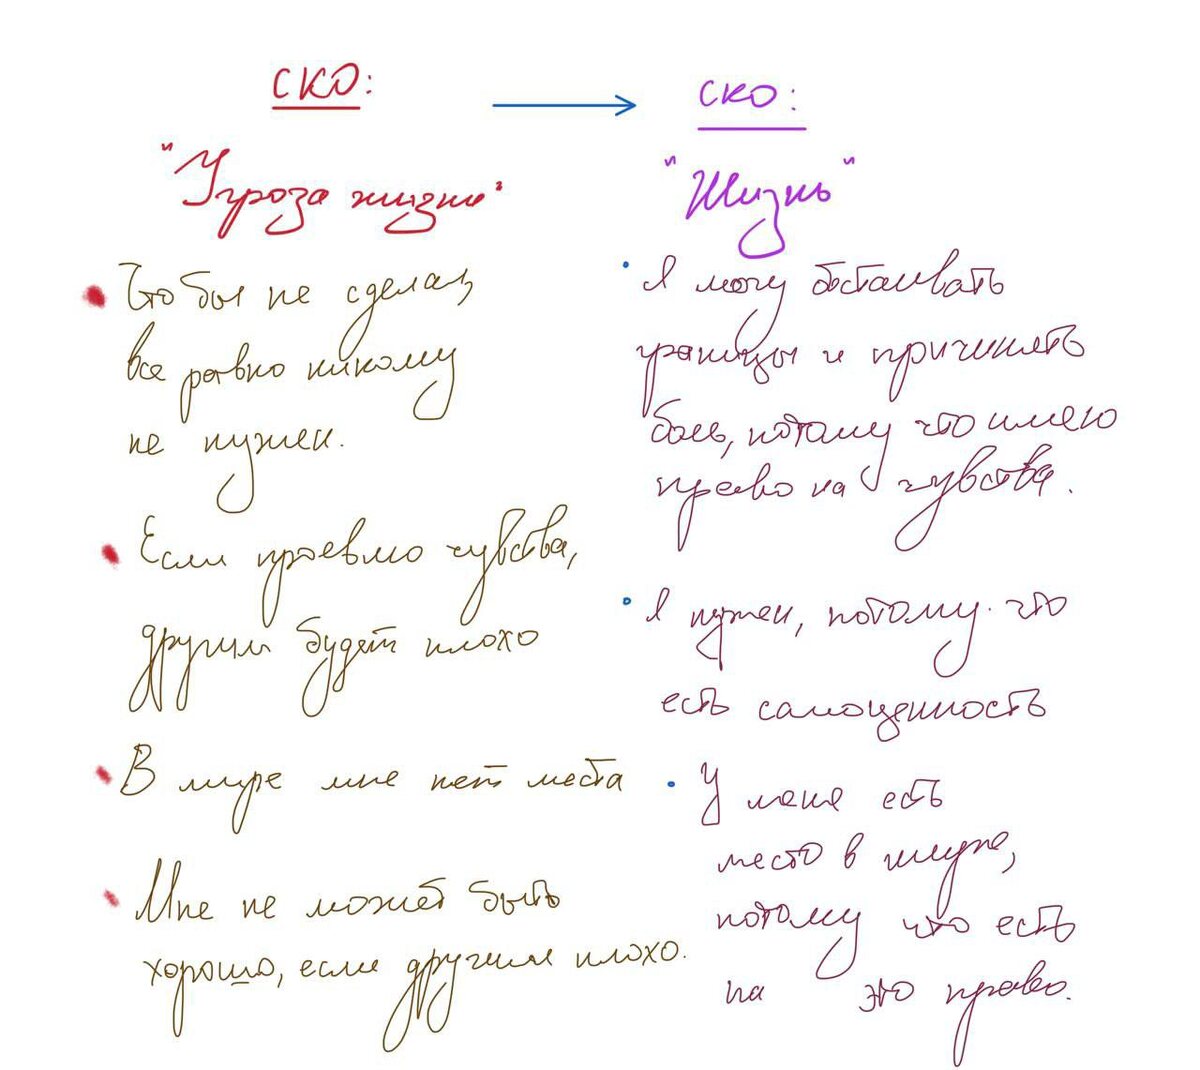 СКО:
"Угроза жизни"
• Что бы не сделал,
все равно никому
не нужен.
• Если проявлю чувства,
другим будет плохо
• В мире мне нет места
• Мне не может быть
хорошо, если другим плохо.
СКО:
"Жизнь"
• Я могу отстаивать
границы и причинять
боль, потому что имею
право на чувства.
• Я нужен, потому что
есть самоценность
• У меня есть
место в мире,
потому что есть
на это право.